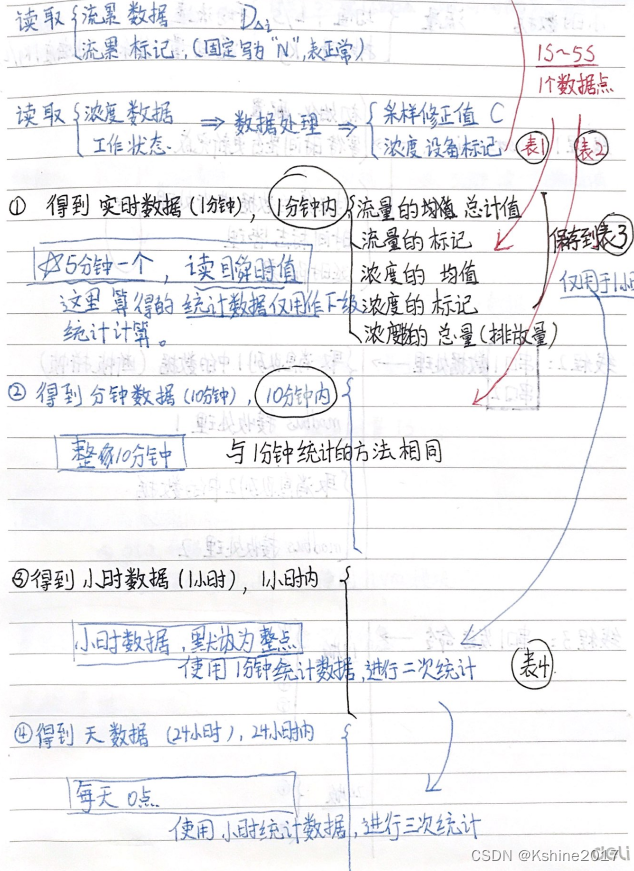 读取 流累数据 DΔi
流累标记,(固定写为"N",表正常)
1S~5S
1个数据点
读取 浓度数据 ⇒ 数据处理 ⇒ 采样修正值 C
工作状态 浓度设备标记 表1 表2
① 得到 实时数据(1分钟), 1分钟内 流量的均值 总计值
流量的标记 保存到表3
☆5分钟一个,读瞬时值 浓度的 均值 仅用于1小
这里 算得的 统计数据仅用作下级 浓度的标记
统计计算。 浓度的总量(排版量)
② 得到分钟数据(10分钟), 10分钟内
整缘10分钟 与1分钟统计的方法相同
③得到小时数据(1小时), 1小时内
小时数据,默认为整点
使用1分钟统计数据,进行二次统计 表4
④得到 天数据 (24小时), 24小时内
每天 0点
使用小时统计数据,进行三次统计
CSDN @Kshine2017